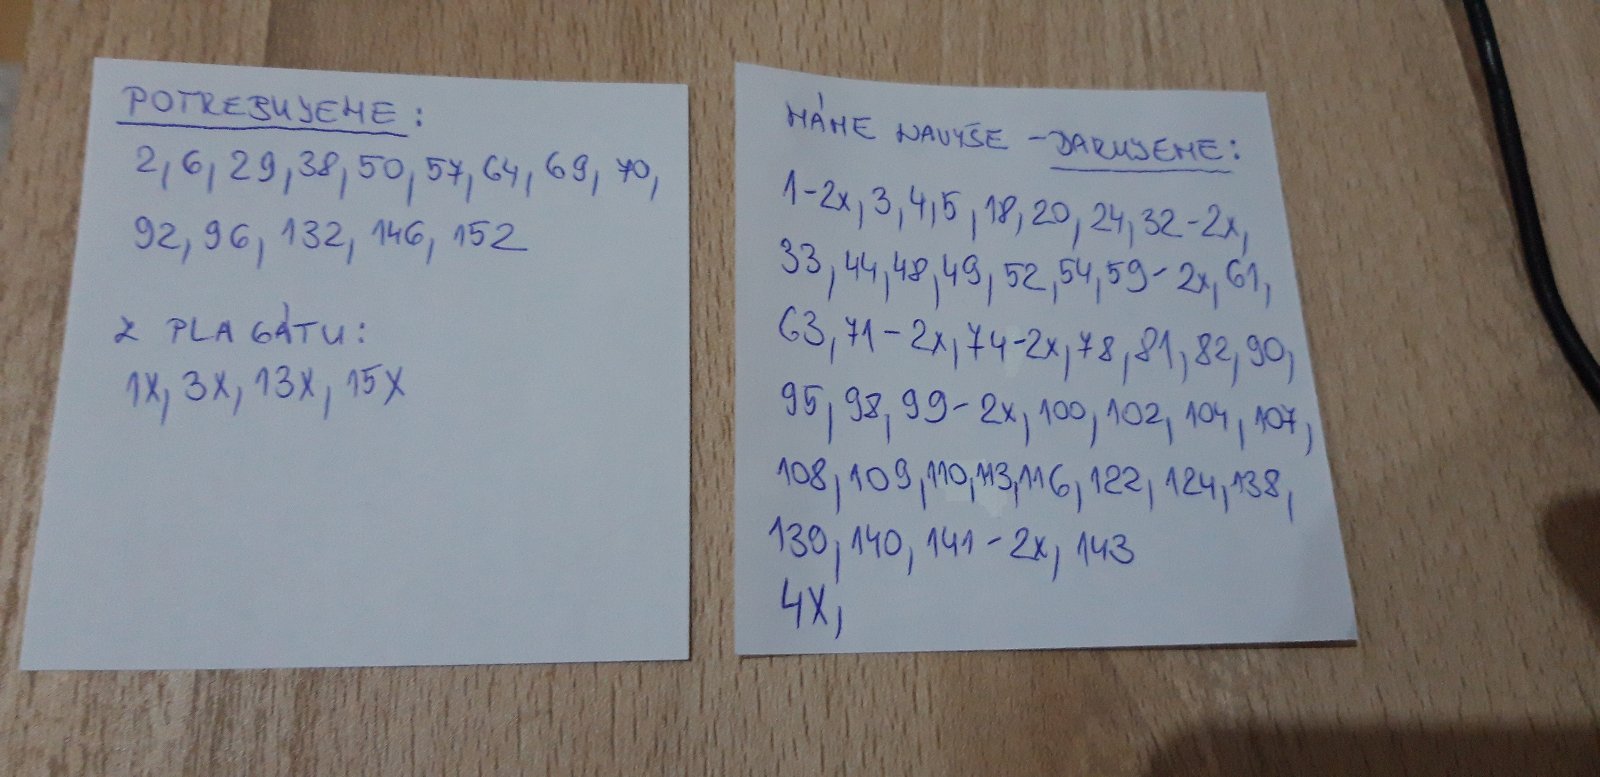 POTREBUJEME:
2, 6, 29, 38, 50, 57, 64, 69, 70,
92, 96, 132, 146, 152
Z PLAGÁTU:
1X, 3X, 13X, 15X
MÁME NAVYŠE - DARUJEME:
1-2x, 3, 4, 5, 18, 20, 24, 32-2x,
33, 44, 48, 49, 52, 54, 59-2x, 61,
63, 71-2x, 74-2x, 78, 81, 82, 90,
95, 98, 99-2x, 100, 102, 104, 107,
108, 109, 110, 113, 116, 122, 124, 138,
139, 140, 141-2x, 143
4X,